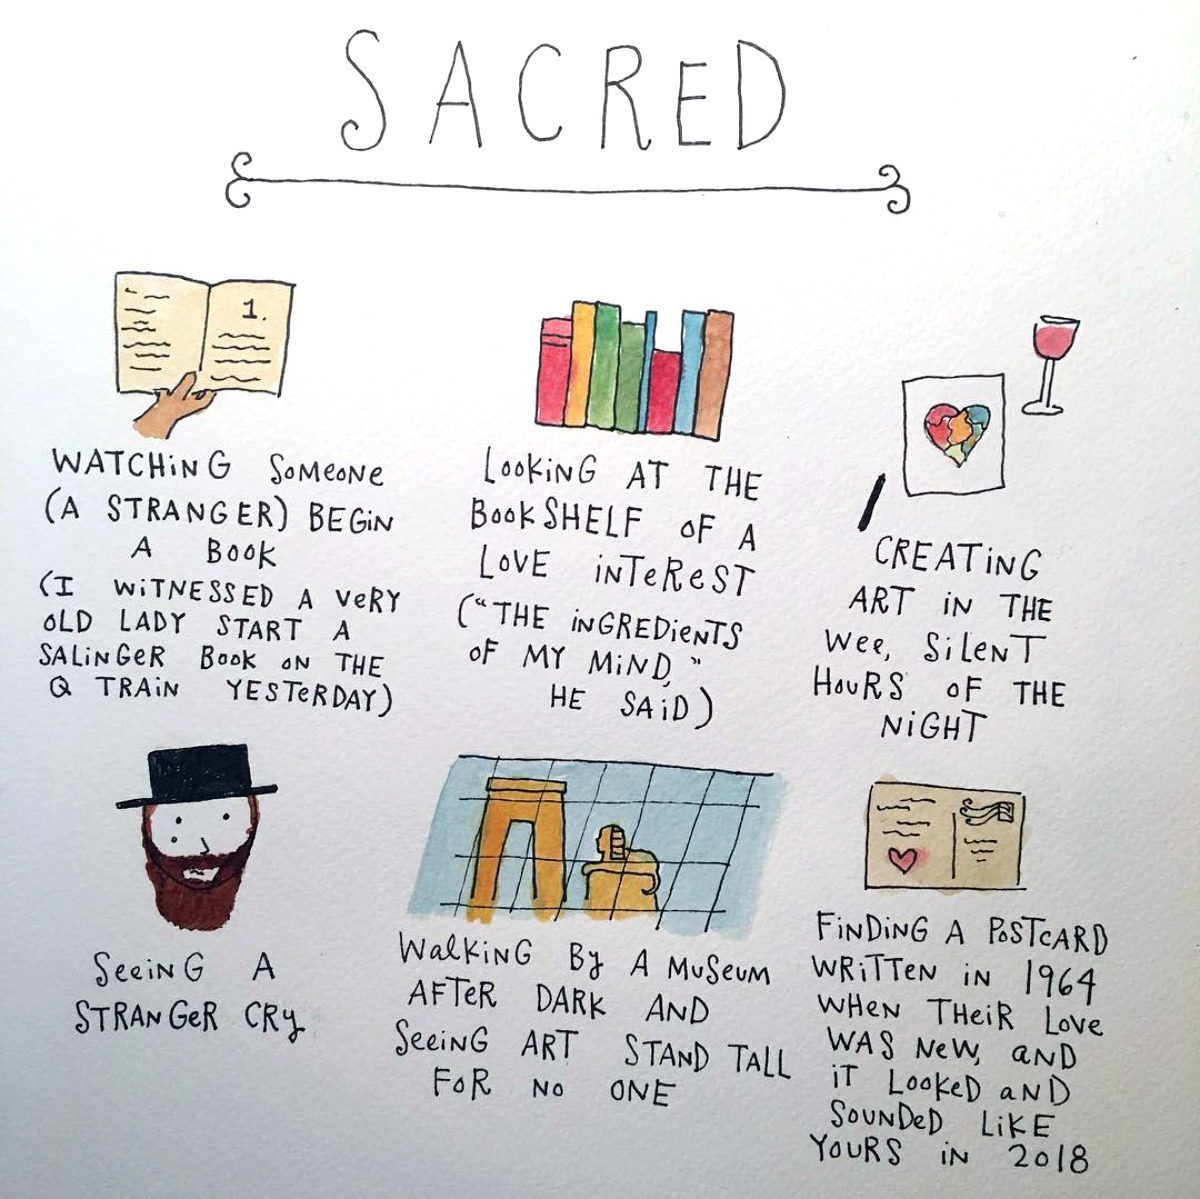 SACRED
1.
WATCHiNG SoMeoNe
(A STRANGER) BEGiN
A BOOK
(I WiTNESSED A VeRY
oLD LADY START A
SALiNGeR Book oN THE
Q TRAiN YESTeRDAY)
LooKiNG AT THE
BookSHELF oF A
LoVE iNTeReST
("THE iNGREDieNTS
oF MY MiND,"
HE SAiD)
CREATiNG
ART iN THE
Wee, SiLeNT
HouRS oF THE
NiGHT
SeeiNG A
STRANGeR CRy
WalKiNG By A MuSeuM
AFTeR DARK AND
SeeiNG ART STAND TALL
FoR No ONE
FiNDiNG A PoSTcARD
WRiTTeN iN 1964
WHeN THeiR LoVe
WAS NeW, aND
iT LooKeD aND
SouNDeD LiKE
YouRS iN 2018